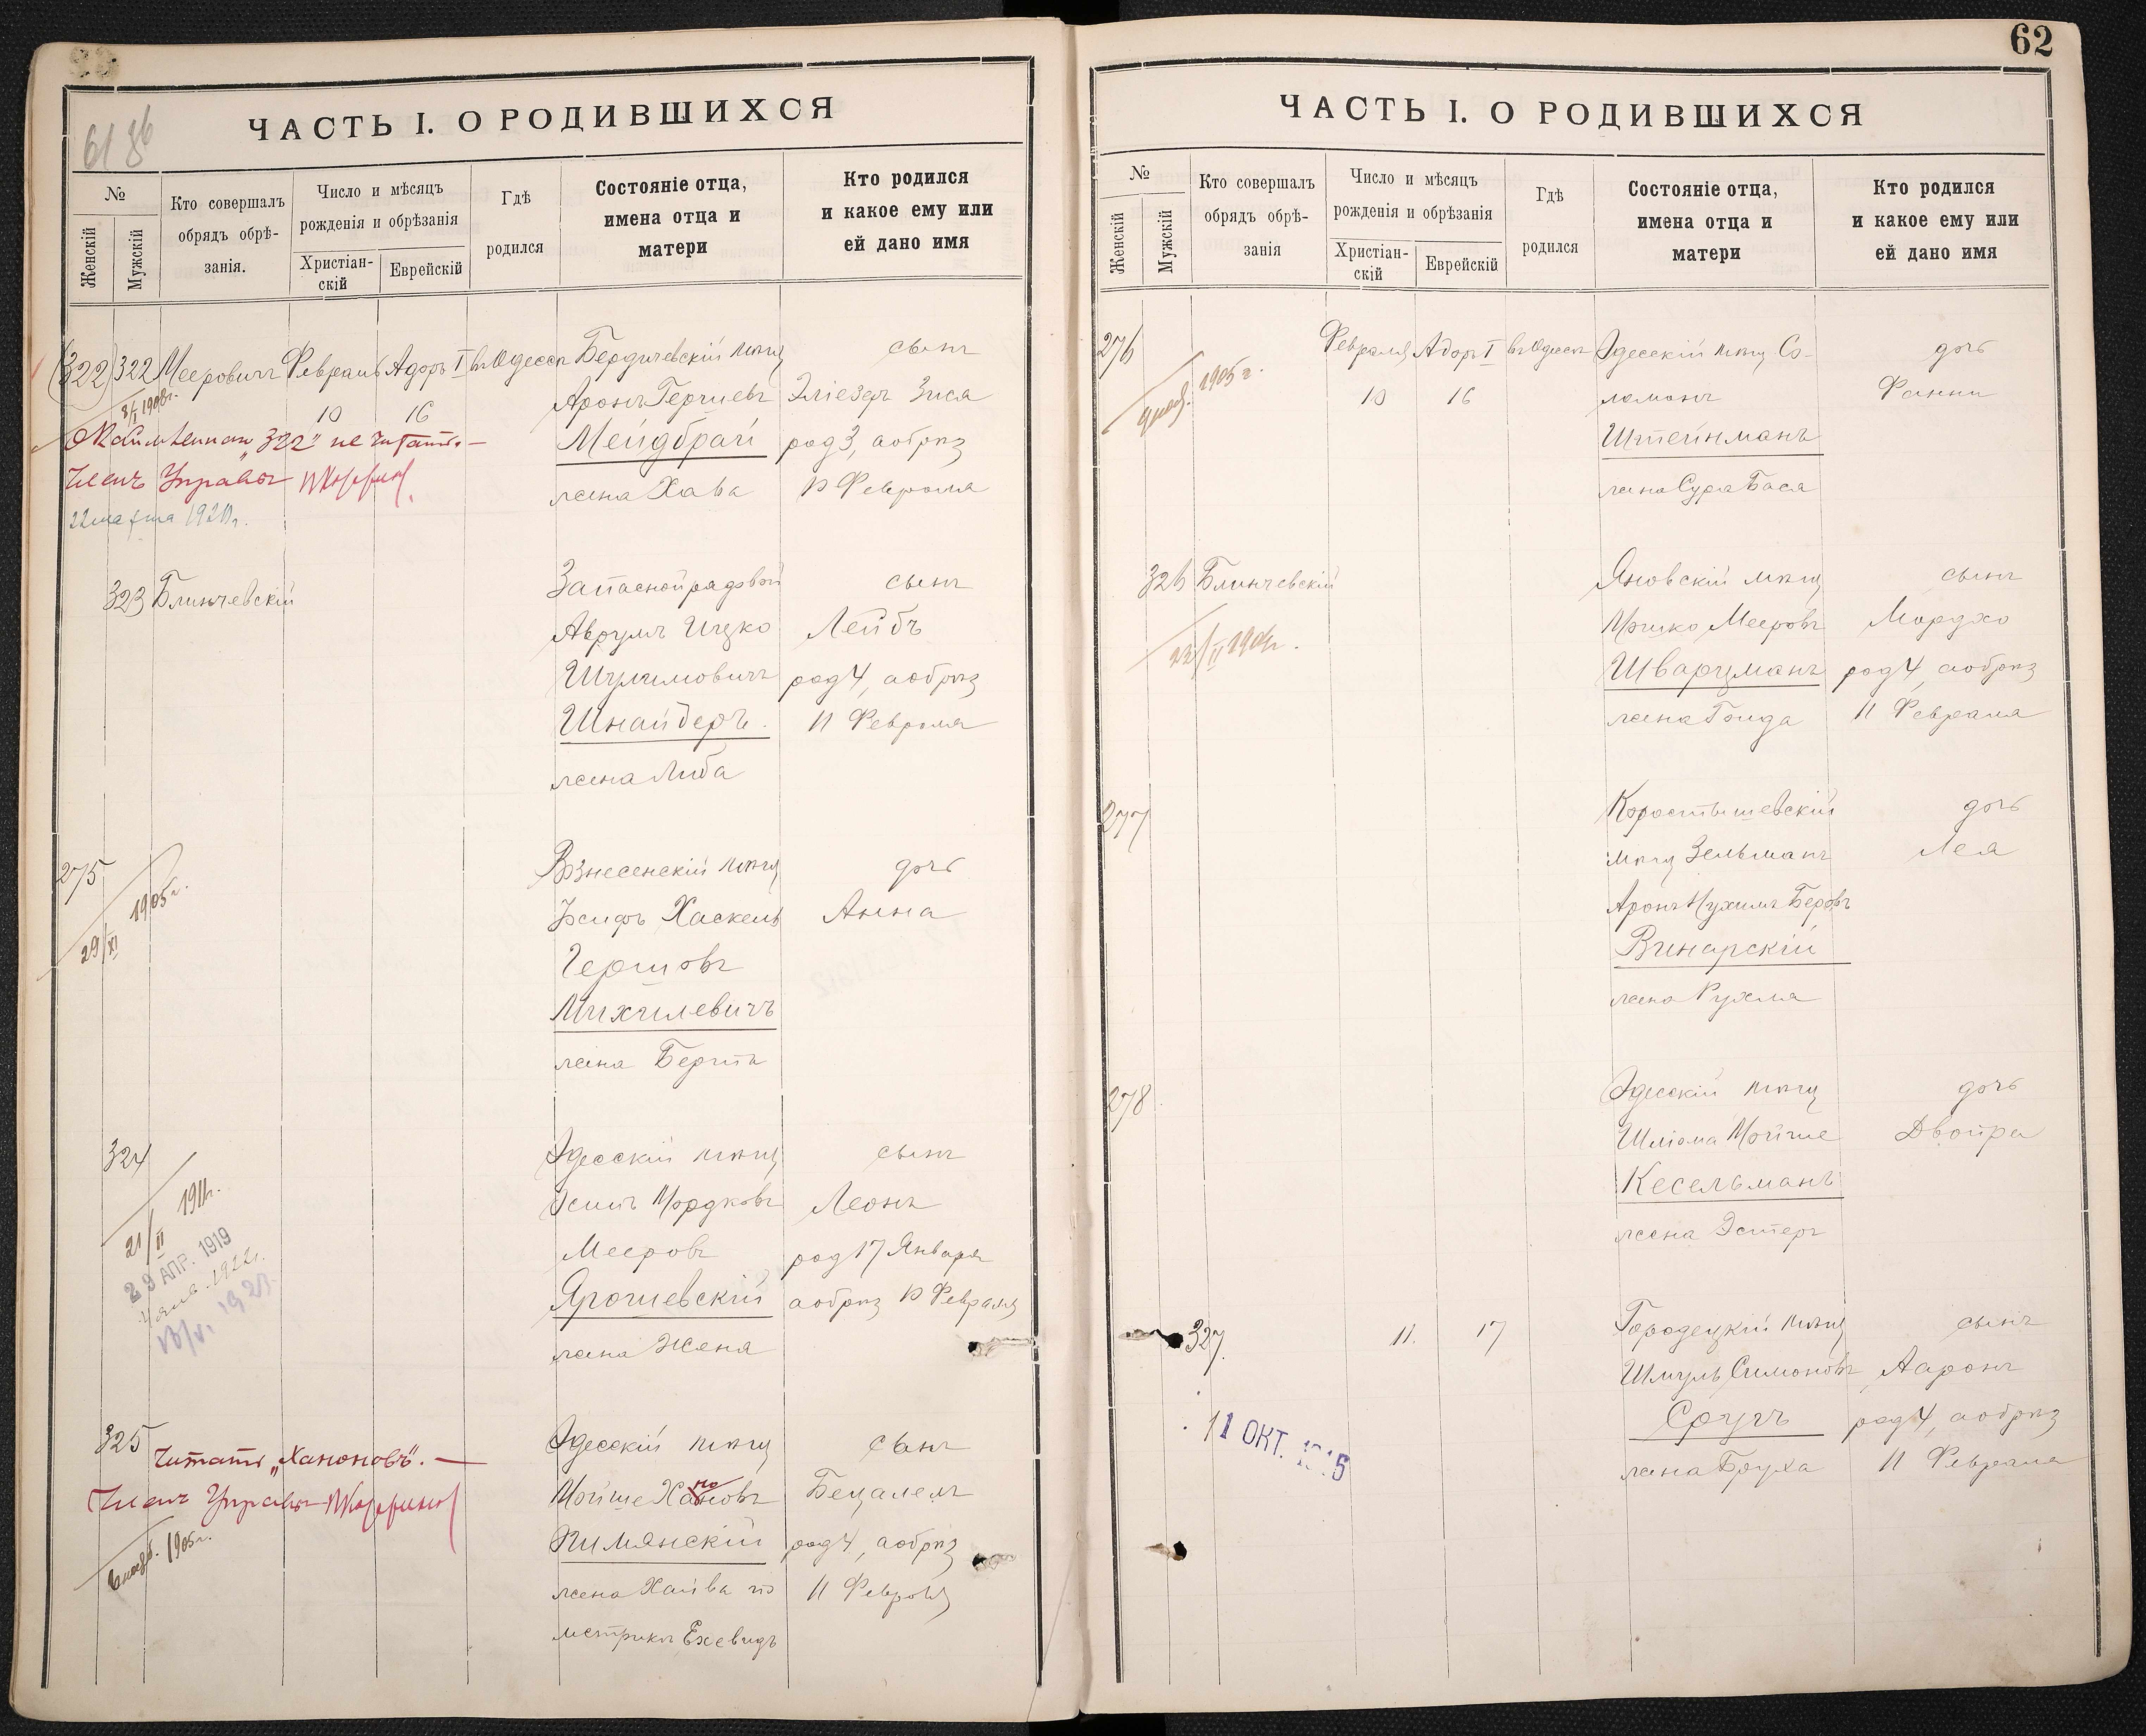 61 86
ЧАСТЬ I. О РОДИВШИХСЯ
№
Женскій
Мужскій
Кто совершалъ
обрядъ обрѣ-
занія.
Число и мѣсяцъ
рожденія и обрѣзанія
Христіан-
скій
Еврейскій
Гдѣ
родился
Состояніе отца,
имена отца и
матери
Кто родился
и какое ему или
ей дано имя
(322) 322 Мееровичъ Февраль Адоръ I въ Одессѣ Бердичевскій мѣщ сынъ
8/I 1908г.
10 16 Аронъ Гершевъ Эліезеръ Зися
"322" не читать.—
Мейдбрай род 3, а обрѣз
Членъ Управы
жена Хава 10 Февраля
22 марта 1920г.
323 Блинчевскій Запасной рядовой сынъ
Аврумъ Ицко Лейбъ
Шулимовичъ род 4, а обрѣз
Шнайдеръ. 11 Февраля
жена Либа
275 Вознесенскій мѣщ дочь
29/XI 1905г.
Іосифъ Хаскель Анна
Гершовъ
Михилевичъ
жена Берта
324 Одесскій мѣщ сынъ
21/II 1911г.
Іосипъ Мордковъ Леонъ
29 АПР. 1919
Мееровъ род 17 Января
Ярошевскій а обрѣз 10 Февраля
жена Женя
325 Одесскій мѣщ сынъ
Читать „Ханоновъ". —
Мойше Хановъ Бецалель
но
Членъ Управы
Пимянскій род 4, а обрѣз
1905г.
жена Хайва по 11 Февраля
метрикѣ Ехевидъ
62
ЧАСТЬ I. О РОДИВШИХСЯ
№
Женскій
Мужскій
Кто совершалъ
обрядъ обрѣ-
занія
Число и мѣсяцъ
рожденія и обрѣзанія
Христіан-
скій
Еврейскій
Гдѣ
родился
Состояніе отца,
имена отца и
матери
Кто родился
и какое ему или
ей дано имя
276 Февраля Адоръ I въ Одессѣ Одесскій мѣщ Со- дочь
1905 г.
10 16 ломонъ Фанни
Штейнманъ
жена Сура Бася
326 Блинчевскій Яновскій мѣщ сынъ
Мошко Мееровъ Мордхо
Шварцманъ род 4, а обрѣз
жена Голда 11 Февраля
277 Коростышевскій дочь
мѣщ Зельманъ Лея
Аронъ Нухимъ Беровъ
Винарскій
жена Рухля
278 Одесскій мѣщ дочь
Шліома Мойше Двойра
Кесельманъ
жена Эстеръ
327. 11. 17 Городецкій мѣщ сынъ
Шмуль Симоновъ Ааронъ
Сругъ род 4, а обрѣз
11 ОКТ.
жена Бруха 11 Февраля